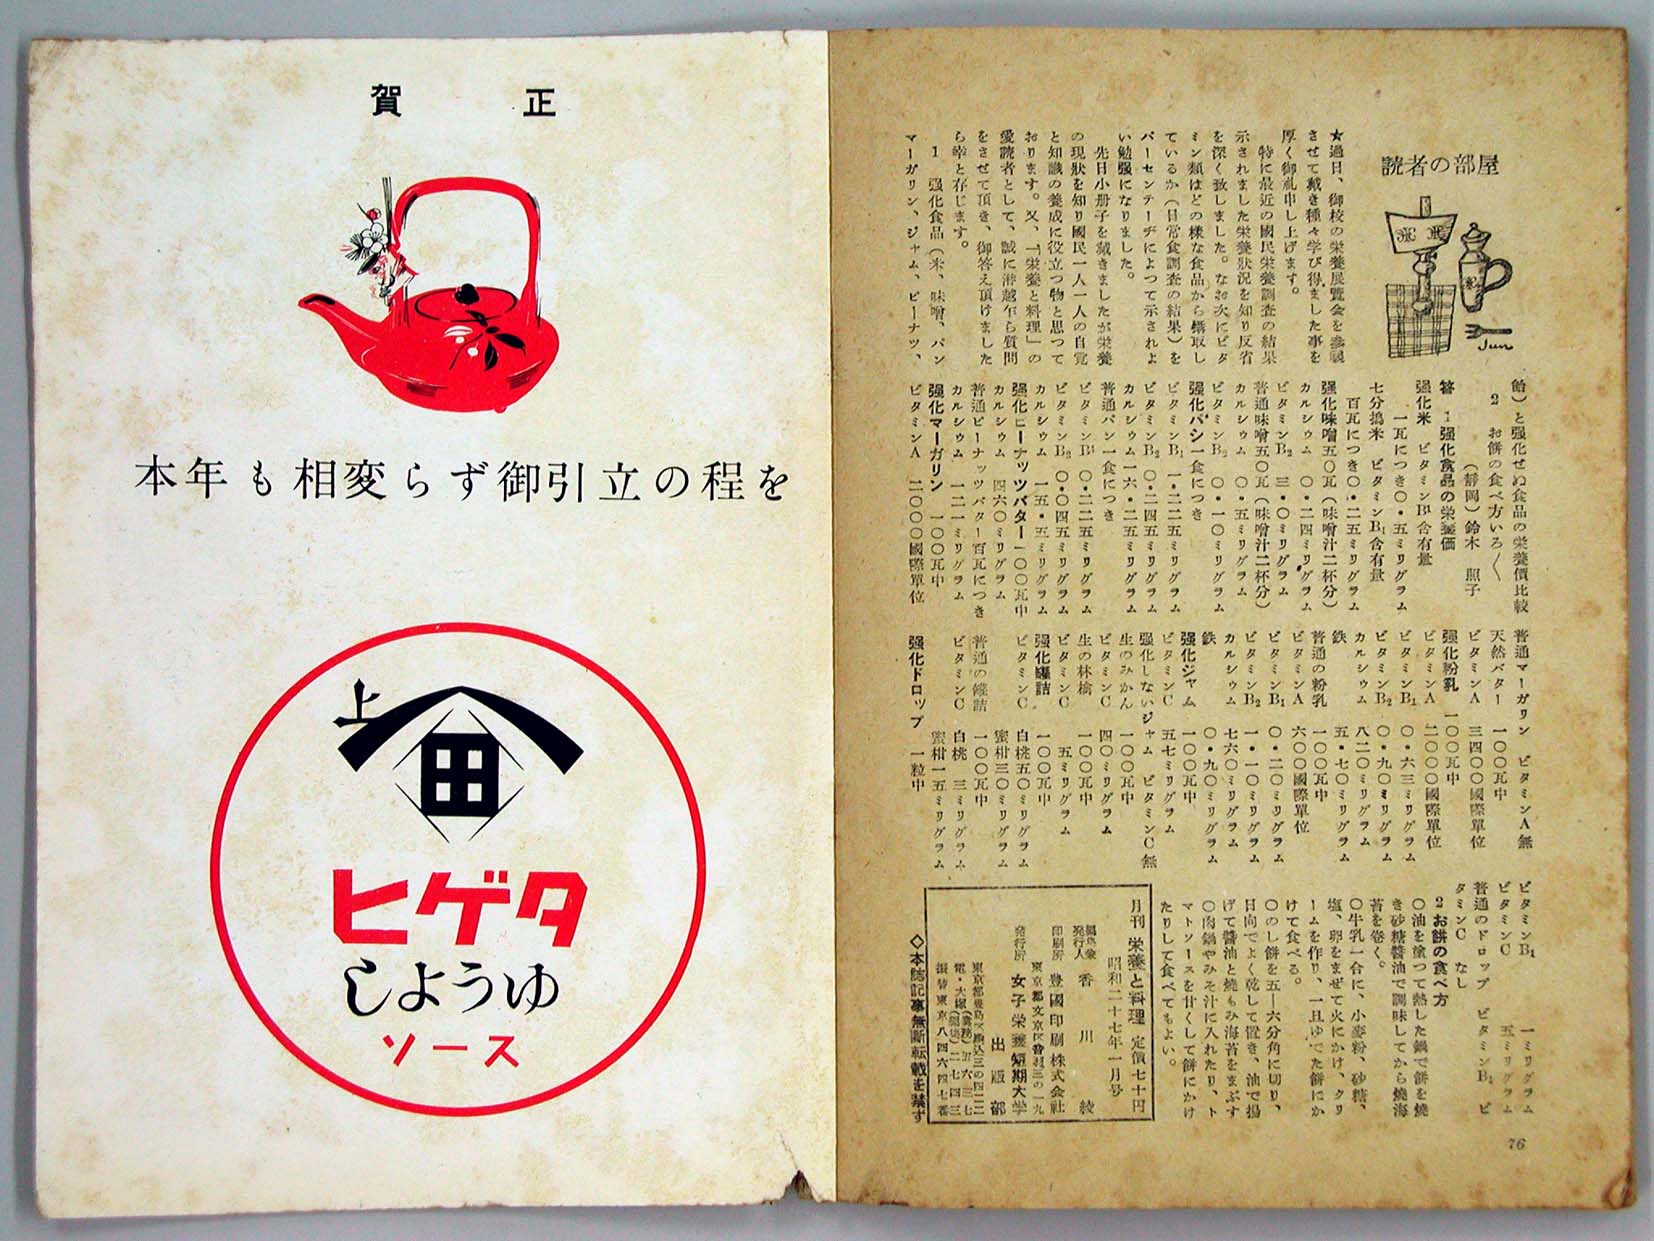 読者の部屋
Jun
★過日、御校の栄養展覧会を参観
させて戴き種々学び得ました事を
厚く御礼申し上げます。
特に最近の國民栄養調査の結果
示されました栄養狀況を知り反省
を深く致しました。なお次にビタ
ミン類はどの様な食品から攝取し
ているか（日常食調査の結果）を
パーセンテーヂによつて示されよ
い勉强になりました。
先日小册子を戴きましたが栄養
の現狀を知り國民一人一人の自覚
と知識の養成に役立つ物と思つて
おります。又、「栄養と料理」の
愛読者として、誠に潜越乍ら質問
をさせて頂き、御答え頂けました
ら幸と存じます。
1 强化食品（米、味噌、パン
マーガリン、ジャム、ピーナツ、
飴）と强化せぬ食品の栄養價比較
2 お餅の食べ方いろ〱
（静岡）鈴木 照子
答 1 强化食品の栄養価
强化米 ビタミンB₁含有量
一瓦につき〇・五ミリグラム
七分搗米 ビタミンB₁含有量
百瓦につき〇・二五ミリグラム
强化味噌五〇瓦（味噌汁二杯分）
カルシウム 〇・二四ミリグラム
ビタミンB₂ 三・〇ミリグラム
普通味噌五〇瓦（味噌汁二杯分）
カルシウム 〇・五ミリグラム
ビタミンB₂ 〇・一〇ミリグラム
强化パン一食につき
ビタミンB₁ 一・二二五ミリグラム
ビタミンB₂ 〇・二四五ミリグラム
カルシウム一六・二五ミリグラム
普通パン一食につき
ビタミンB₁ 〇・二二五ミリグラム
ビタミンB₂ 〇・〇四五ミリグラム
カルシウム 一五・五ミリグラム
强化ピーナッツバター一〇〇瓦中
カルシウム 四六〇ミリグラム
普通ピーナッツバター百瓦につき
カルシウム 一二一ミリグラム
强化マーガリン 一〇〇瓦中
ビタミンA 二〇〇〇國際單位
普通マーガリン ビタミンA無
天然バター 一〇〇瓦中
ビタミンA 三四〇〇國際單位
强化粉乳 一〇〇瓦中
ビタミンA 二〇〇〇國際單位
ビタミンB₁ 〇・六三ミリグラム
ビタミンB₂ 〇・九〇ミリグラム
カルシウム 八二〇ミリグラム
鉄 五・七〇ミリグラム
普通の粉乳 一〇〇瓦中
ビタミンA 六〇〇國際單位
ビタミンB₁ 〇・二〇ミリグラム
ビタミンB₂ 一・一〇ミリグラム
カルシウム 七六〇ミリグラム
鉄 〇・九〇ミリグラム
强化ジャム 一〇〇瓦中
ビタミンC 五七ミリグラム
强化しないジャム ビタミンC無
生のみかん 一〇〇瓦中
ビタミンC 四〇ミリグラム
生の林檎 一〇〇瓦中
ビタミンC 五ミリグラム
强化罐詰 一〇〇瓦中
ビタミンC 白桃五〇ミリグラム
蜜柑三〇ミリグラム
普通の罐詰 一〇〇瓦中
ビタミンC 白桃 三ミリグラム
蜜柑一五ミリグラム
强化ドロップ 一粒中
ビタミンB₁ 一ミリグラム
ビタミンC 五ミリグラム
普通のドロップ ビタミンB₁ ビ
タミンC なし
2 お餅の食べ方
〇油を塗つて熱した鍋で餅を燒
き砂糖醬油で調味してから燒海
苔を卷く。
〇牛乳一合に、小麥粉、砂糖、
塩、卵をまぜて火にかけ、クリ
ームを作り、一旦ゆでた餅にか
けて食べる。
〇のし餅を五—六分角に切り、
日向でよく乾して置き、油で揚
げて醬油と燒もみ海苔をまぶす
〇肉鍋やみそ汁に入れたり、ト
マトソースを甘くして餅にかけ
たりして食べてもよい。
月刊 栄養と料理 定價七十円
昭和二十七年一月号
編集兼
発行人 香川 綾
印刷所 豊國印刷株式会社
東京都文京区音羽三の一九
発行所 女子栄養短期大学
出版部
東京都豊島区駒込三の四二二
電・大塚
振替東京八四六四七番
◇本誌記事無断転載を禁ず
76
賀 正
本年も相変らず御引立の程を
上
田
ヒゲタ
しようゆ
ソース